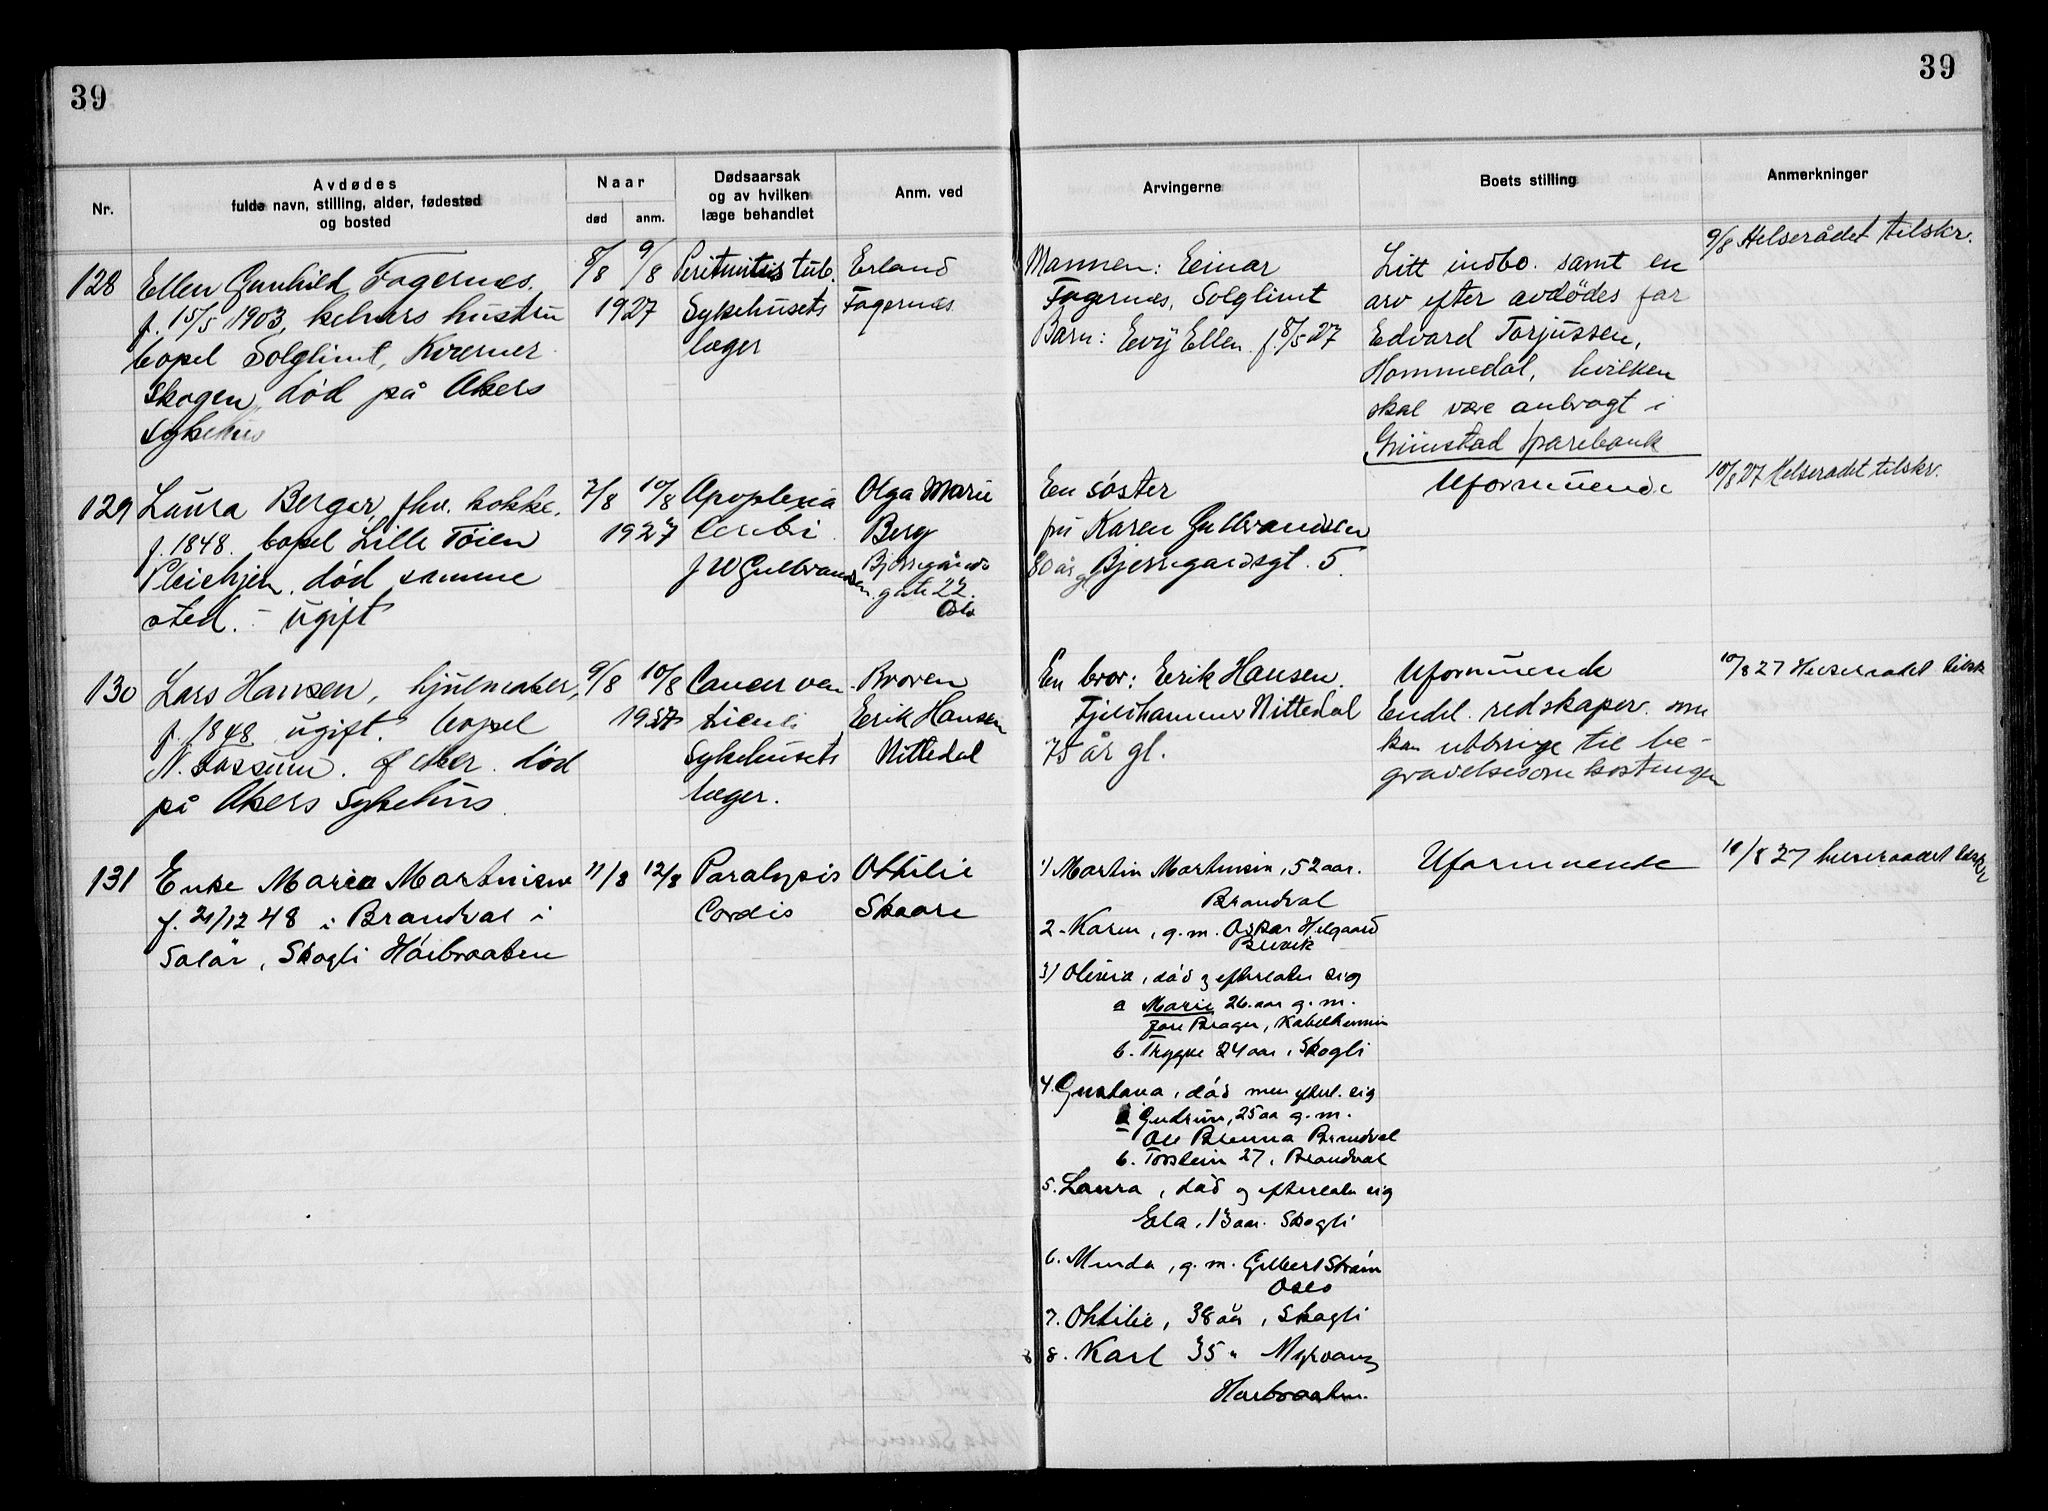 39
39
Nr.
Avdødes
fulde navn, stilling, alder, fødested
og bosted
Naar
død
anm.
Dødsaarsak
og av hvilken
læge behandlet
Anm. ved
Arvingerne
Boets stilling
Anmerkninger
128
Ellen Gunhild Fagernæs.
f. 15/5 1903, kelners hustru
bopel Solglimt, Kværner
skogen, død på Akers
sykehus
8/8 9/8
1927
Peritonitis tub.
Sykehusets
læger
Erland
Fagernæs
Mannen: Einar
Fagernæs, Solglimt
Barn: Evy Ellen f. 8/5 27
Litt indbo. samt en
arv efter avdødes far
Edvard Torjussen,
Hommedal, hvilken
skal være anbragt i
Grimstad sparebank
9/8 Helserådet tilskr.
129
Laura Berger, fhv. kokke.
f. 1848. bopel Lille Tøien
Pleiehjem. død samme
sted. - ugift
7/8 10/8
1927
Apoplexia
Cerebri
J W Gulbrandsen
Olga Marie
Berg
Bjerregårds
gate 22.
Oslo
En søster
frú Karen Gulbrandsen
80 år gl. Bjerregaardsgt. 5
Uformuende
10/8 27 Helserådet tilskr.
130
Lars Hansen, hjulmaker,
f. 1848 ugift. bopel
N. Fossum. Ø Aker. død
på Akers Sykehus.
9/8 10/8
1927
Cancer ven
triculi
Sykehusets
læger.
Broren
Erik Hansen
Nittedal
En bror: Erik Hansen.
Fjeldhammer Nittedal
75 år gl.
Uformuende
Endel redskaper. som
kan utbringe til be-
gravelsesomkostningen
10/8 27 Helseraadet tilsk
131
Enke Marie Martinsen
f. 21/12 48 i Brandval i
Solør, Skogli Høibraaten
11/8 12/8
Paralysis
Cordis
Othilie
Skaare
1) Martin Martinsen, 52 aar.
Brandval
2 - Karen, g.m. Oskar Helgaard
3) Olivia, død og efterlater sig
a Marie 26 aar g. m.
Brager,
b. Trygve 24 aar, Skogli
4. Gustava, død men efterl. sig
a Gudrun, 25 aa g. m.
Ole Brenna Brandval
b. Torstein 27, Brandval
5. Laura, død og efterlater sig
Ella, 13 aar. Skogli
6. Minda, g. m. Gilbert Strøm
Oslo
7. Othilie, 38 aar, Skogli
8. Karl 35 " Myrvang
Høibraaten.
Uformuende
/8 27 helseraadet tilskr